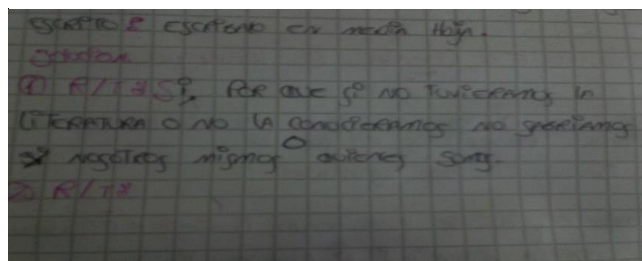 escrito e escriendo en media Hoja.
Solution
① R/Ta Si, POR QUE Si NO TUVIERAMOS LA
LITERATURA O NO LA CONOCIERAMOS NO SERIAMOS
NOSOTROS mismos O quienes somos.
② R/Ta